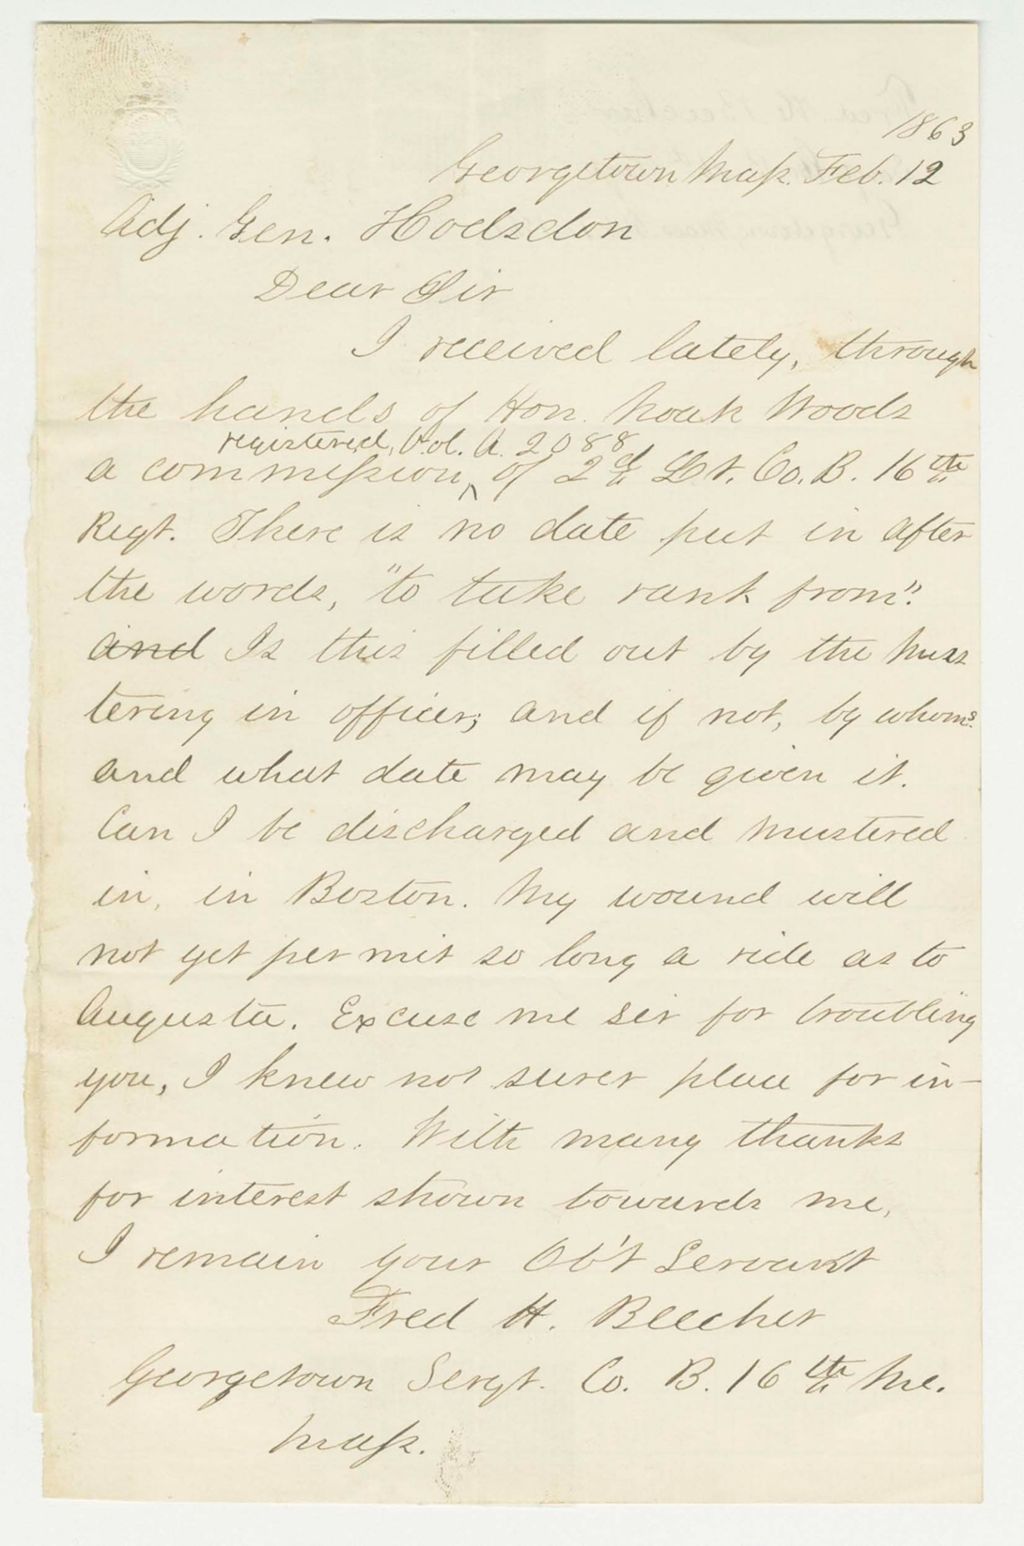 1863
Georgetown Mass. Feb. 12
Adj. Gen. Hodsdon
Dear Sir
I received lately, through
the hands of Hon. Noah Woods
registered, Vol. A. 2088
a commission ^ of 2d Lt. Co. B. 16th
Regt. There is no date put in after
the words, "to take rank from".
and Is this filled out by the mus
tering in officer; and if not, by whom?
and what date may be given it.
Can I be discharged and mustered
in, in Boston. My wound will
not yet permit so long a ride as to
Augusta. Excuse me sir for troubling
you, I knew not surer place for in-
formation. With many thanks
for interest shown towards me,
I remain your Ob't Servant
Fred H. Beecher
Georgetown Sergt. Co. B. 16th Me.
Mass.